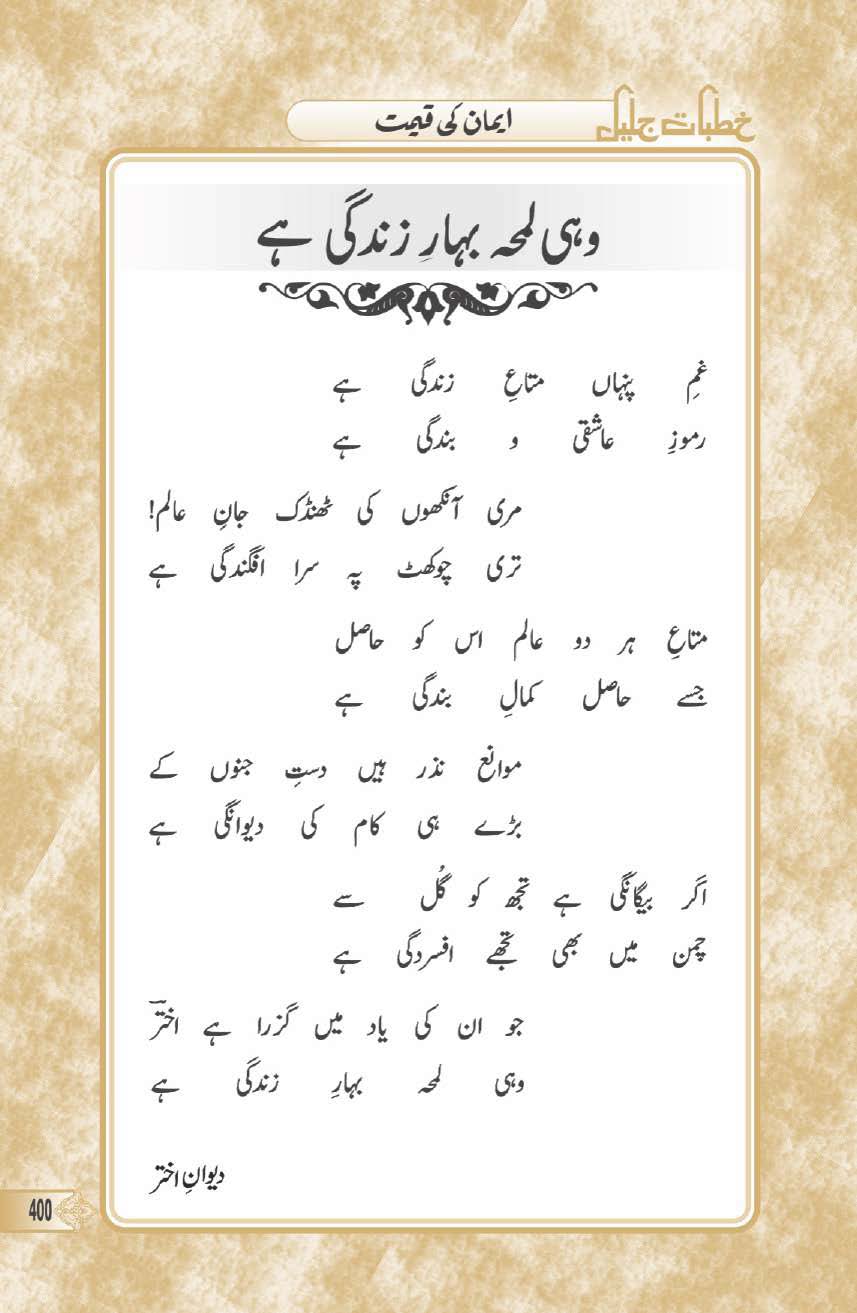 خطبات جلیل
ایمان کی قیمت
وہی لمحہ بہارِ زندگی ہے
غمِ پنہاں متاعِ زندگی ہے
رموزِ عاشقی و بندگی ہے
مری آنکھوں کی ٹھنڈک جانِ عالم!
تری چوکھٹ پہ سرا افگندگی ہے
متاعِ ہر دو عالم اس کو حاصل
جسے حاصل کمالِ بندگی ہے
موانع نذر ہیں دستِ جنوں کے
بڑے ہی کام کی دیوانگی ہے
اگر بیگانگی ہے تجھ کو گُل سے
چمن میں بھی تجھے افسردگی ہے
جو ان کی یاد میں گزرا ہے اخترؔ
وہی لمحہ بہارِ زندگی ہے
دیوانِ اختر
400